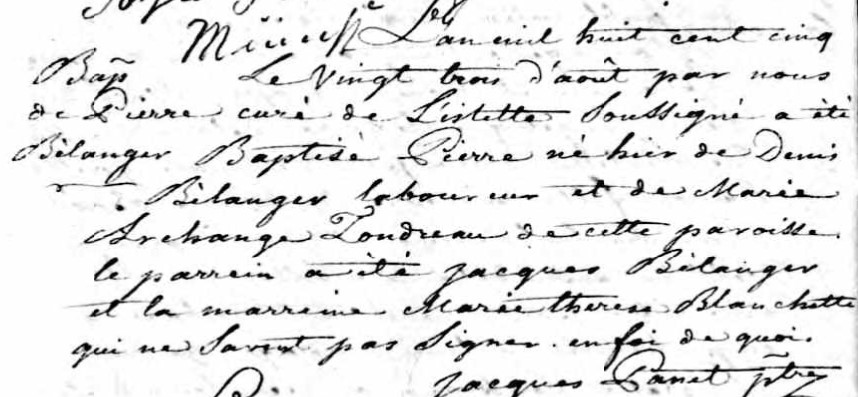 L'an mil huit cent cinq
Bap Le vingt trois d'août par nous
de Pierre curé de Lislette Soussigné a été
Bélanger Baptisé Pierre né hier de Denis
Bélanger laboureur et de Marie
Archange Tondreau de cette paroisse
le parrein a été jacques Bélanger
et la marreine Marie therese Blanchette
qui ne savent pas signer. en foi de quoi.
jacques Panet ptre